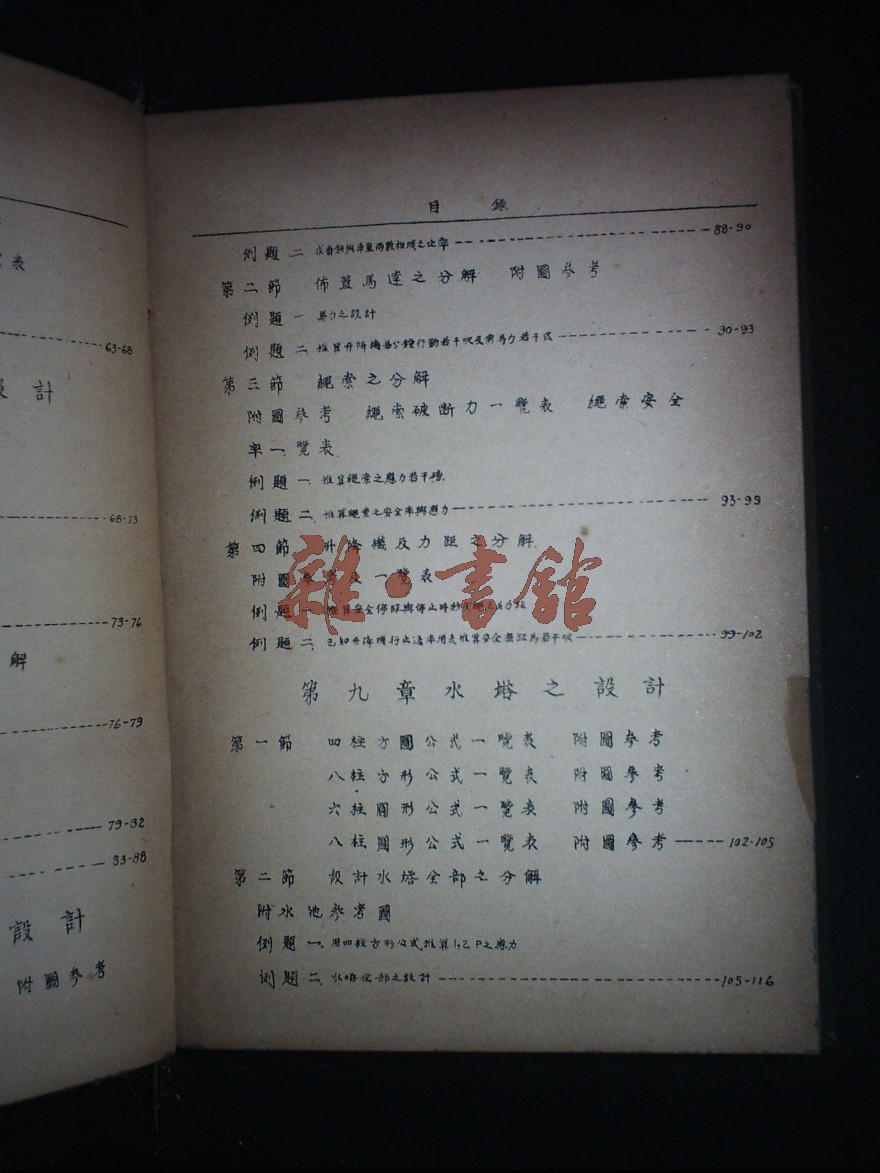 表
63-68
設計
68-73
73-76
解
76-79
79-82
83-88
設計
附圖參考
目 錄
例題二 求 與車盤兩數相域之比率 88-90
第二節 佈置馬達之分解 附圖參考
例題一 馬力之設計
例題二 推算升降機每分鐘行動若干呎及需馬力若干匹 90-93
第三節 繩索之分解
附圖參考 繩索破断力一覽表 繩索安全
率一覽表
例題一 推算繩索之應力若干磅
例題二 推算繩索之安全率與應力 93-99
第四節 升降機反力距之分解
附圖參考及一覽表
例題一 推算安全停 與停止時
例題二 已知升降機行走速率用表推算安全 為若干呎 99-102
第九章水塔之設計
第一節 四柱方圓公式一覽表 附圖參考
八柱方形公式一覽表 附圖參考
六柱圓形公式一覽表 附圖參考
八柱圓形公式一覽表 附圖參考 102-105
第二節 設計水塔全部之分解
附水池參考圖
例題一 用四柱方形公式推算1,2 P之應力
例題二 水塔全部之設計 105-116
雜·書館